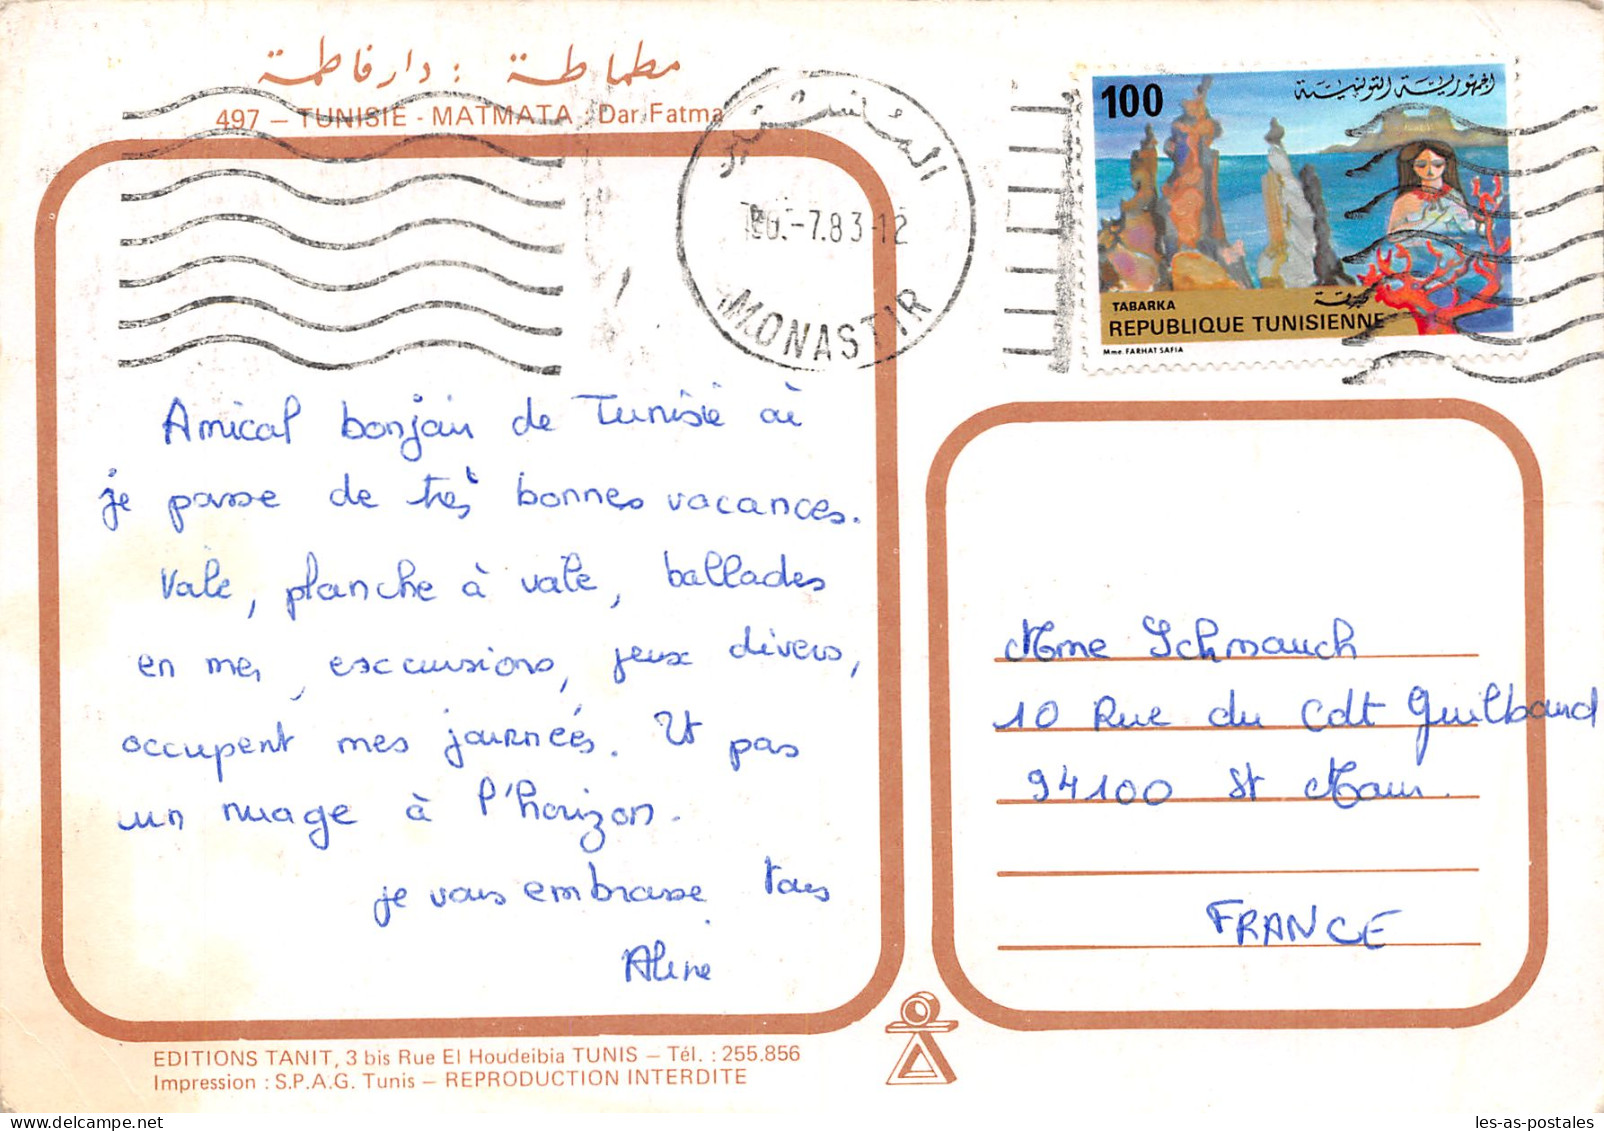 مطماطة : دار فاطمة
497 – TUNISIE - MATMATA : Dar Fatma
المنستير
-7.83-12
MONASTIR
100
الجمهورية التونسية
TABARKA
طبرقة
REPUBLIQUE TUNISIENNE
Mme. FARHAT SAFIA
Amical bonjour de Tunisie où
je passe de très bonnes vacances.
Voile, planche à voile, ballades
en mer, excursions, jeux divers,
occupent mes journées. Et pas
un nuage à l'horizon.
je vous embrasse tous
Aline
Mme Schmauch
10 Rue du Cdt Guilbaud
94100 St Maur.
FRANCE
EDITIONS TANIT, 3 bis Rue El Houdeibia TUNIS – Tél. : 255.856
Impression : S.P.A.G. Tunis – REPRODUCTION INTERDITE
les-as-postales.com